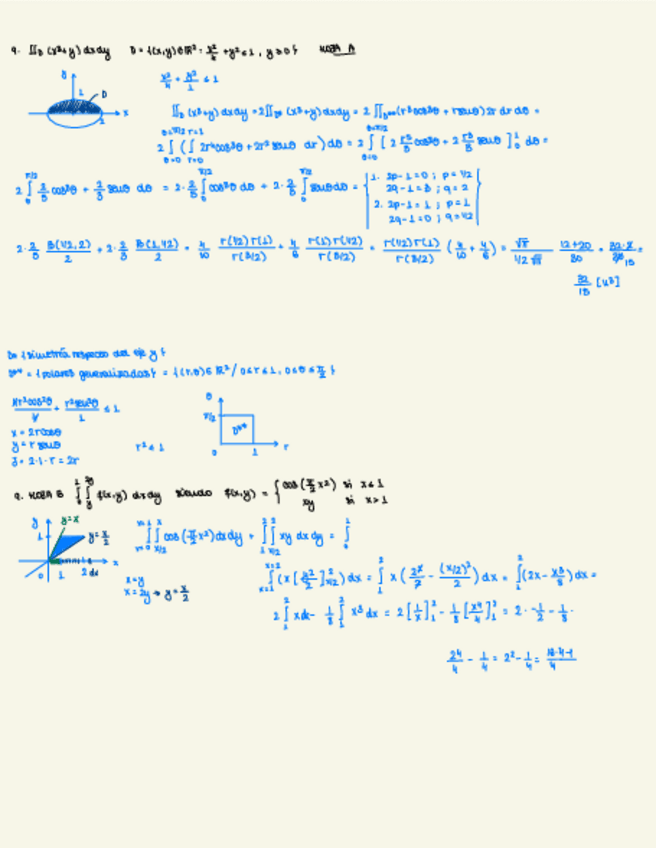 9. ∬_D (x³+y) dxdy   D = {(x,y)∈ℝ² : x²/4 + y² ≤ 1, y ≥ 0}   HOJA A
y
1
D
x
2
x²/4 + y²/1 ≤ 1
∬_D (x³+y) dxdy = 2∬_D* (x³+y) dxdy = 2∬_D** (r³cos³θ + r senθ) 2r dr dθ =
2 ∫_{θ=0}^{θ=π/2} ( ∫_{r=0}^{r=1} 2r⁴cos³θ + 2r² senθ dr ) dθ = 2 ∫_{θ=0}^{θ=π/2} [ 2 r⁵/5 cos³θ + 2 r³/3 senθ ]_0^1 dθ =
2 ∫_0^{π/2} 2/5 cos³θ + 2/3 senθ dθ = 2·2/5 ∫_0^{π/2} cos³θ dθ + 2·2/3 ∫_0^{π/2} senθ dθ =
1. 2p-1=0 ; p=1/2
2q-1=3 ; q=2
2. 2p-1=1 ; p=1
2q-1=0 ; q=1/2
2·2/5 B(1/2,2)/2 + 2·2/3 B(1,1/2)/2 = 4/10 Γ(1/2)Γ(1)/Γ(3/2) + 4/6 Γ(1)Γ(1/2)/Γ(3/2) = Γ(1/2)Γ(1)/Γ(3/2) (4/10 + 4/6) = √π/(1/2 √π) 12+20/30 = 32·2/30 =
32/15 [u³]
D* {simetría respecto del eje y}
D** = {polares generalizadas} = {(r,θ)∈ℝ² / 0≤r≤1, 0≤θ≤π/2}
4r²cos²θ/4 + r²sen²θ/1 ≤ 1
x = 2r cosθ
y = r senθ
J = 2·1·r = 2r
r² ≤ 1
θ
π/2
D**
0 1 r
9. HOJA B ∫_0^1 ∫_y^{2y} f(x,y) dxdy siendo f(x,y) = { cos(π/2 x²) si x ≤ 1
xy si x > 1
y
y=x
y=x/2
1
x
0 1 2
x=y
x=2y → y=x/2
∫_{x=0}^{x=1} ∫_{x/2}^{x} cos(π/2 x²) dxdy + ∫_1^2 ∫_{x/2}^{1} xy dxdy = ∫_0^1
∫_{x=1}^{x=2} (x [y²/2]_{x/2}^{2}) dx = ∫_1^2 x (2²/2 - (x/2)²/2) dx = ∫_1^2 (2x - x³/8) dx =
2 ∫_1^2 x dx - 1/8 ∫_1^2 x³ dx = 2 [1/x]_1^2 - 1/8 [x⁴/4]_1^2 = 2·-1/2 - 1/8·
2⁴/4 - 1/4 = 2² - 1/4 =